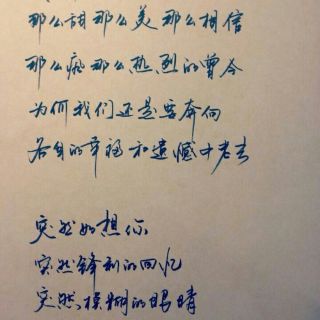 那么甜那么美那么相信
那么疯那么热烈的曾今
为何我们还是要奔向
各自的幸福和遗憾中老去
突然好想你
突然锋利的回忆
突然模糊的眼睛